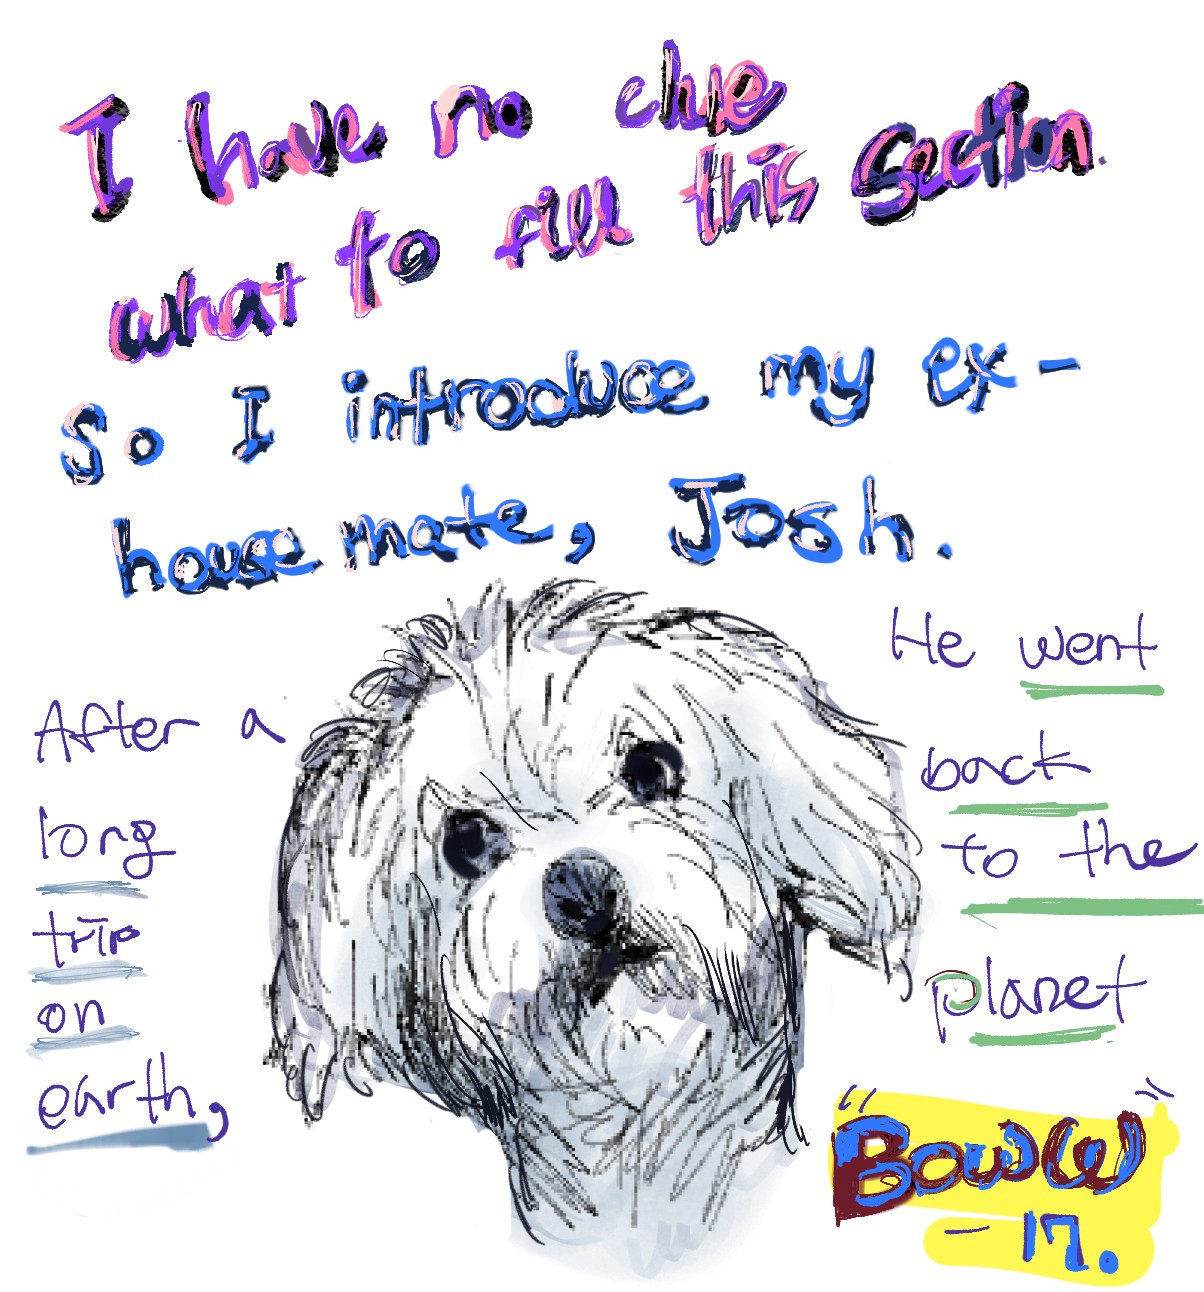 I have no clue
what to fill this section
So I introduce my ex-
housemate, Josh.
After a
long
trip
on
earth,
He went
back
to the
planet
"BowW"
- 17.